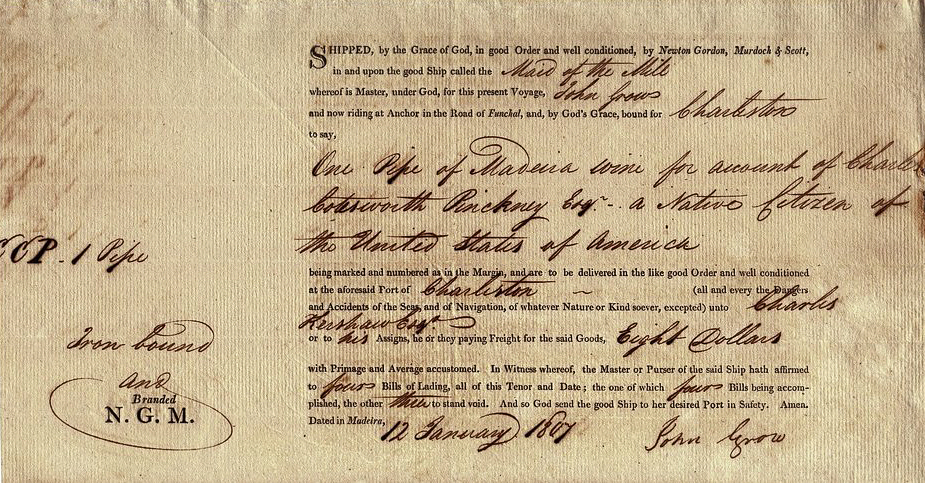 SHIPPED, by the Grace of God, in good Order and well conditioned, by Newton Gordon, Murdoch & Scott,
in and upon the good Ship called the Maid of the Mill
whereof is Master, under God, for this present Voyage, John Grow
and now riding at Anchor in the Road of Funchal, and, by God's Grace, bound for Charleston
to say,
One Pipe of Madeira wine for account of Charles
Cotesworth Pinckney Esqr. - a Native Citizen of
the United States of America
CCP. 1 Pipe
being marked and numbered as in the Margin, and are to be delivered in the like good Order and well conditioned
at the aforesaid Port of Charleston ~ (all and every the Dangers
and Accidents of the Seas, and of Navigation, of whatever Nature or Kind soever, excepted) unto Charles
Kershaw Esqr.
or to his Assigns, he or they paying Freight for the said Goods, Eight Dollars
Iron bound
and
Branded
N. G. M.
with Primage and Average accustomed. In Witness whereof, the Master or Purser of the said Ship hath affirmed
to four Bills of Lading, all of this Tenor and Date; the one of which four Bills being accom-
plished, the other three to stand void. And so God send the good Ship to her desired Port in Safety. Amen.
Dated in Madeira, 12 January 1807
John Grow